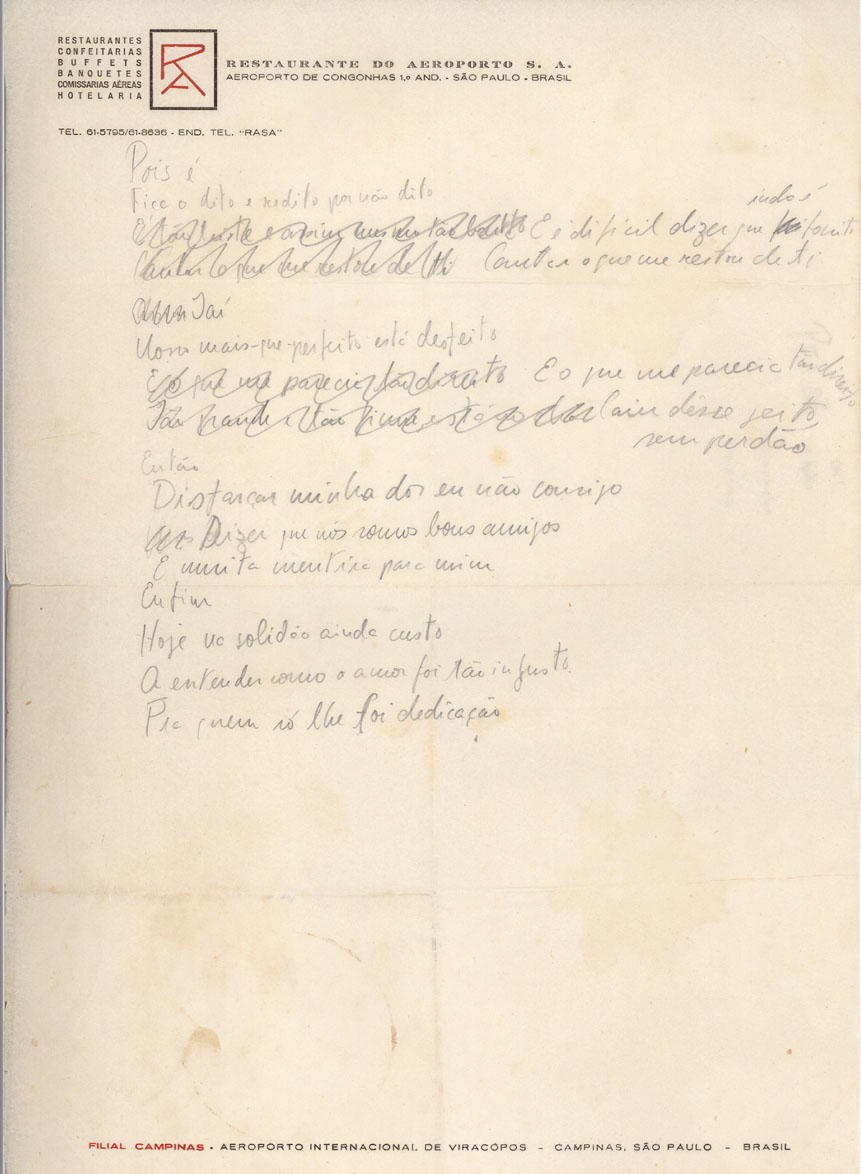 RESTAURANTES
CONFEITARIAS
BUFFETS
BANQUETES
COMISSARIAS AÉREAS
HOTELARIA
RA
RESTAURANTE DO AEROPORTO S. A.
AEROPORTO DE CONGONHAS 1.º AND. - SÃO PAULO - BRASIL
TEL. 61-5795/61-8636 - END. TEL. "RASA"
Pois é
Fica o dito e redito por não dito
inda é
E é difícil dizer que foi bonito
Cantar o que me restou de ti
Taí
Nosso mais-que-perfeito está desfeito
E o que me parecia tão direito E o que me parecia tão direito
Caiu desse jeito
sem perdão
Então
Disfarçar minha dor eu não consigo
Dizer que nós somos bons amigos
É muita mentira para mim
Enfim
Hoje na solidão ainda custo
A entender como o amor foi tão injusto
Pra quem só lhe foi dedicação
FILIAL CAMPINAS - AEROPORTO INTERNACIONAL DE VIRACÓPOS - CAMPINAS, SÃO PAULO - BRASIL